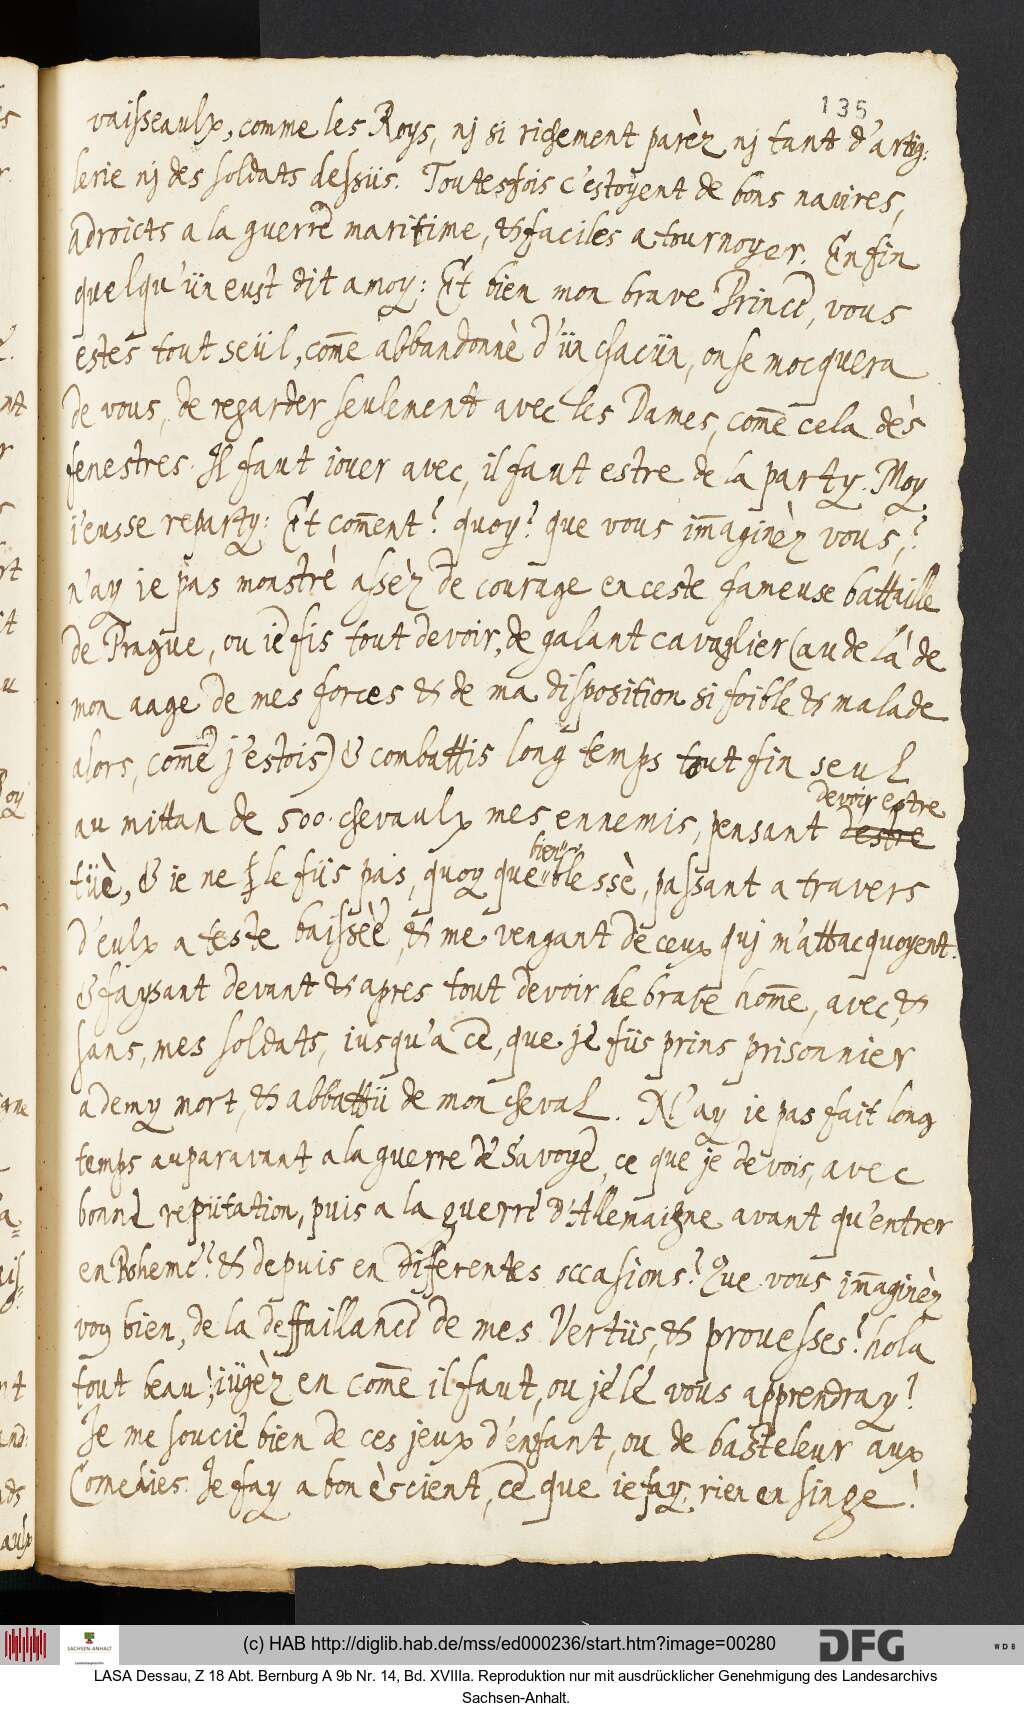 135
vaisseaulx, comme les Roys, nj si richement parèz nj tant d'artig:
lerie nj des soldats dessüs. Toutesfois c'estoyent de bons navires,
adroicts a la guerre maritime, & faciles a tournoyer. En fin
quelqu'ün eust dit a moy: Et bien mon brave Prince, vous
estes tout seül, com̃e abbandonnè d'ün chacün, on se mocquera
de vous, de regarder seulement avec les Dames, com̃e cela dès
fenestres. Il faut iouer avec, il faut estre de la party. Moy
i'eusse reparty: Et com̃ent? quoy? que vous im̃aginèz vous,?
n'ay ie pas monstré assèz de courage en ceste fameuse battaille
de Prague, ou ie fis tout devoir, de galant cavaglier (au de là de
mon aage de mes forces & de ma disposition si foible & malade
alors, com̃e j'estois) & combattis long temps tout fin seul
devoir estre
au mittan de 500. chevaulx mes ennemis, pensant d'estre
bien
tüè, & ie ne le füs pas, quoy que blessè, passant a travers
d'eulx a teste baissèe, & me vengant de ceux quj m'attacquoyent.
& faysant devant & apres tout devoir de brave hom̃e, avec, &
sans, mes soldats, iusqu'a ce, que je füs prins prisonnier
a demy mort, & abbattü de mon cheval. N'ay ie pas fait long
temps auparavant a la guerre de Savoye, ce que je devois, avec
bonne repütation, puis a la guerre d'Allemaigne avant qu'entrer
en Boheme? & depuis en differentes occasions? Que vous im̃aginèz
voy bien, de la deffaillance de mes Vertüs, & prouesses? hola
tout beau, jügèz en com̃e il faut, ou je le vous apprendray!
Je me soucie bien de ces jeux d'enfant, ou de basteleur aux
Comedies. Je fay a bon èscient, ce que ie fay, rien en singe!
(c) HAB http://diglib.hab.de/mss/ed000236/start.htm?image=00280
SACHSEN-ANHALT
DFG
WDB
LASA Dessau, Z 18 Abt. Bernburg A 9b Nr. 14, Bd. XVIIIa. Reproduktion nur mit ausdrücklicher Genehmigung des Landesarchivs
Sachsen-Anhalt.